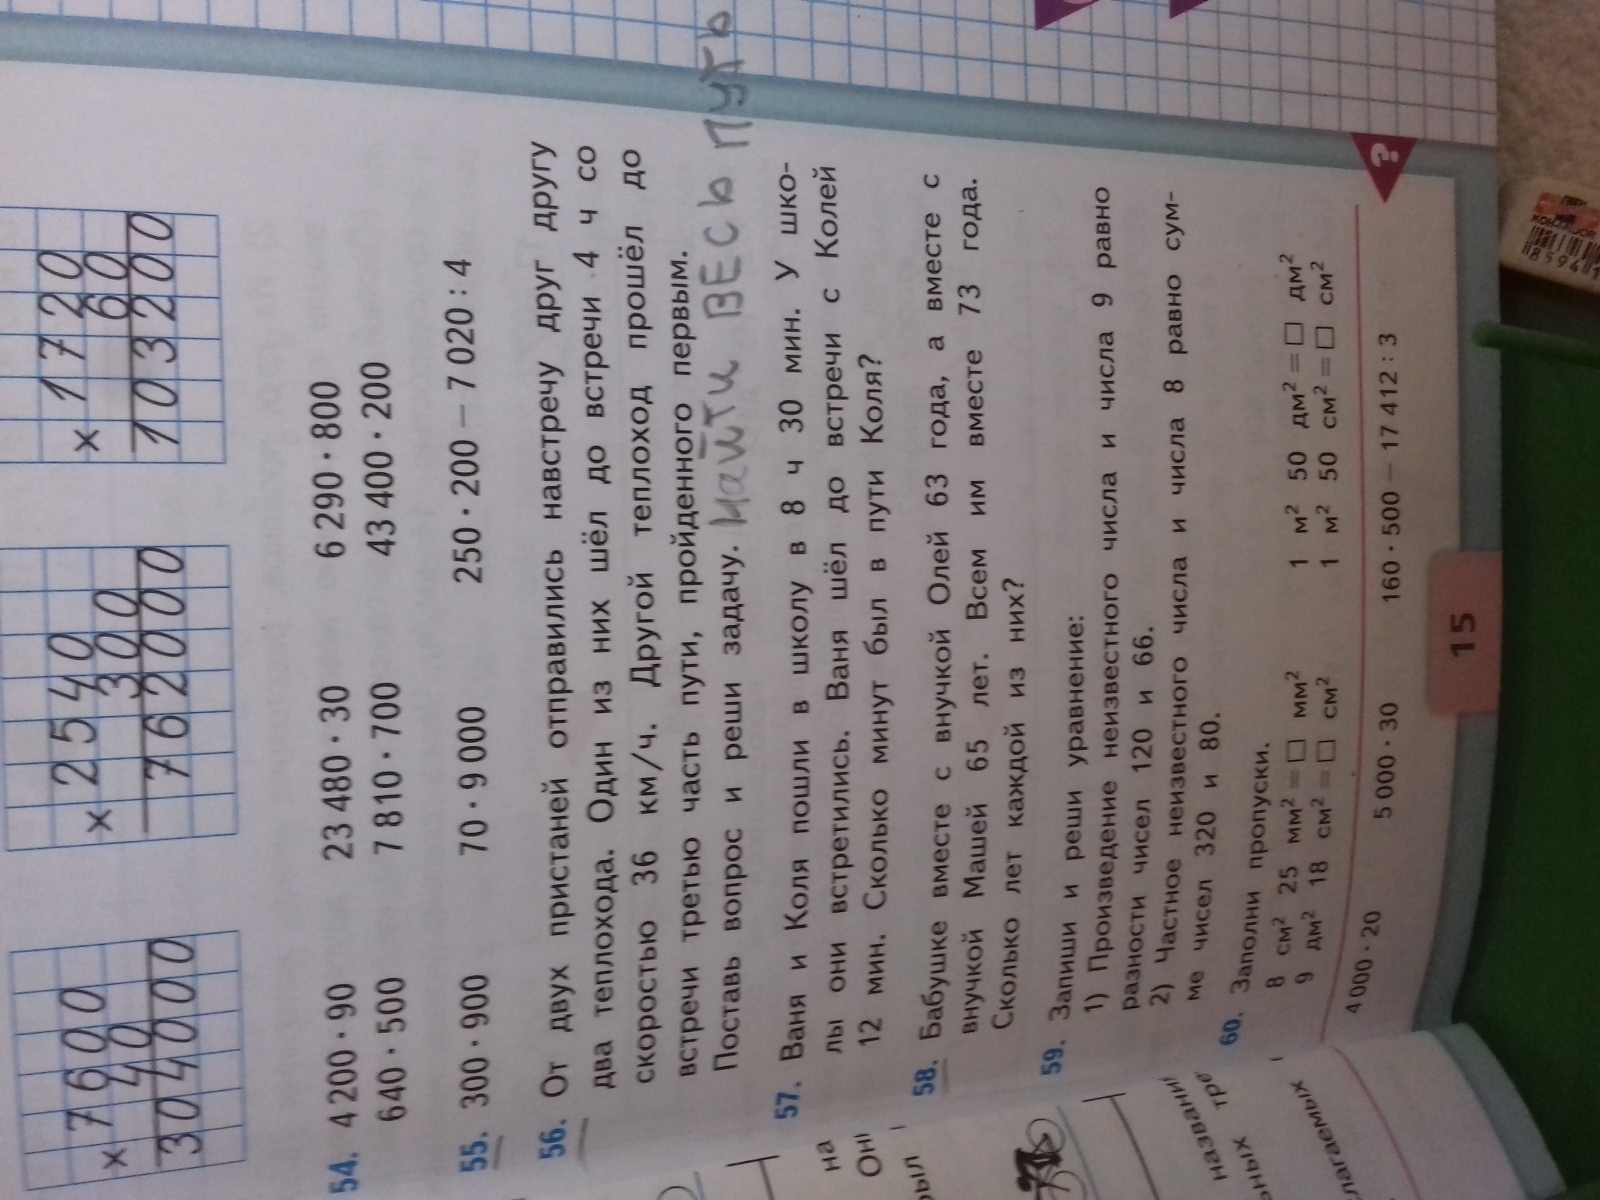 × 7600
40
304000
× 2540
300
762000
× 1720
60
103200
54. 4 200 · 90 23 480 · 30 6 290 · 800
640 · 500 7 810 · 700 43 400 · 200
55. 300 · 900 70 · 9 000 250 · 200 − 7 020 : 4
56. От двух пристаней отправились навстречу друг другу
два теплохода. Один из них шёл до встречи 4 ч со
скоростью 36 км/ч. Другой теплоход прошёл до
встречи третью часть пути, пройденного первым.
Поставь вопрос и реши задачу. Найти весь путь
57. Ваня и Коля пошли в школу в 8 ч 30 мин. У шко-
лы они встретились. Ваня шёл до встречи с Колей
12 мин. Сколько минут был в пути Коля?
58. Бабушке вместе с внучкой Олей 63 года, а вместе с
внучкой Машей 65 лет. Всем им вместе 73 года.
Сколько лет каждой из них?
59. Запиши и реши уравнение:
1) Произведение неизвестного числа и числа 9 равно
разности чисел 120 и 66.
2) Частное неизвестного числа и числа 8 равно сум-
ме чисел 320 и 80.
60. Заполни пропуски.
8 см² 25 мм² = □ мм² 1 м² 50 дм² = □ дм²
9 дм² 18 см² = □ см² 1 м² 50 см² = □ см²
4 000 · 20 5 000 · 30 160 · 500 − 17 412 : 3
?
15
на
названи
лагаемых